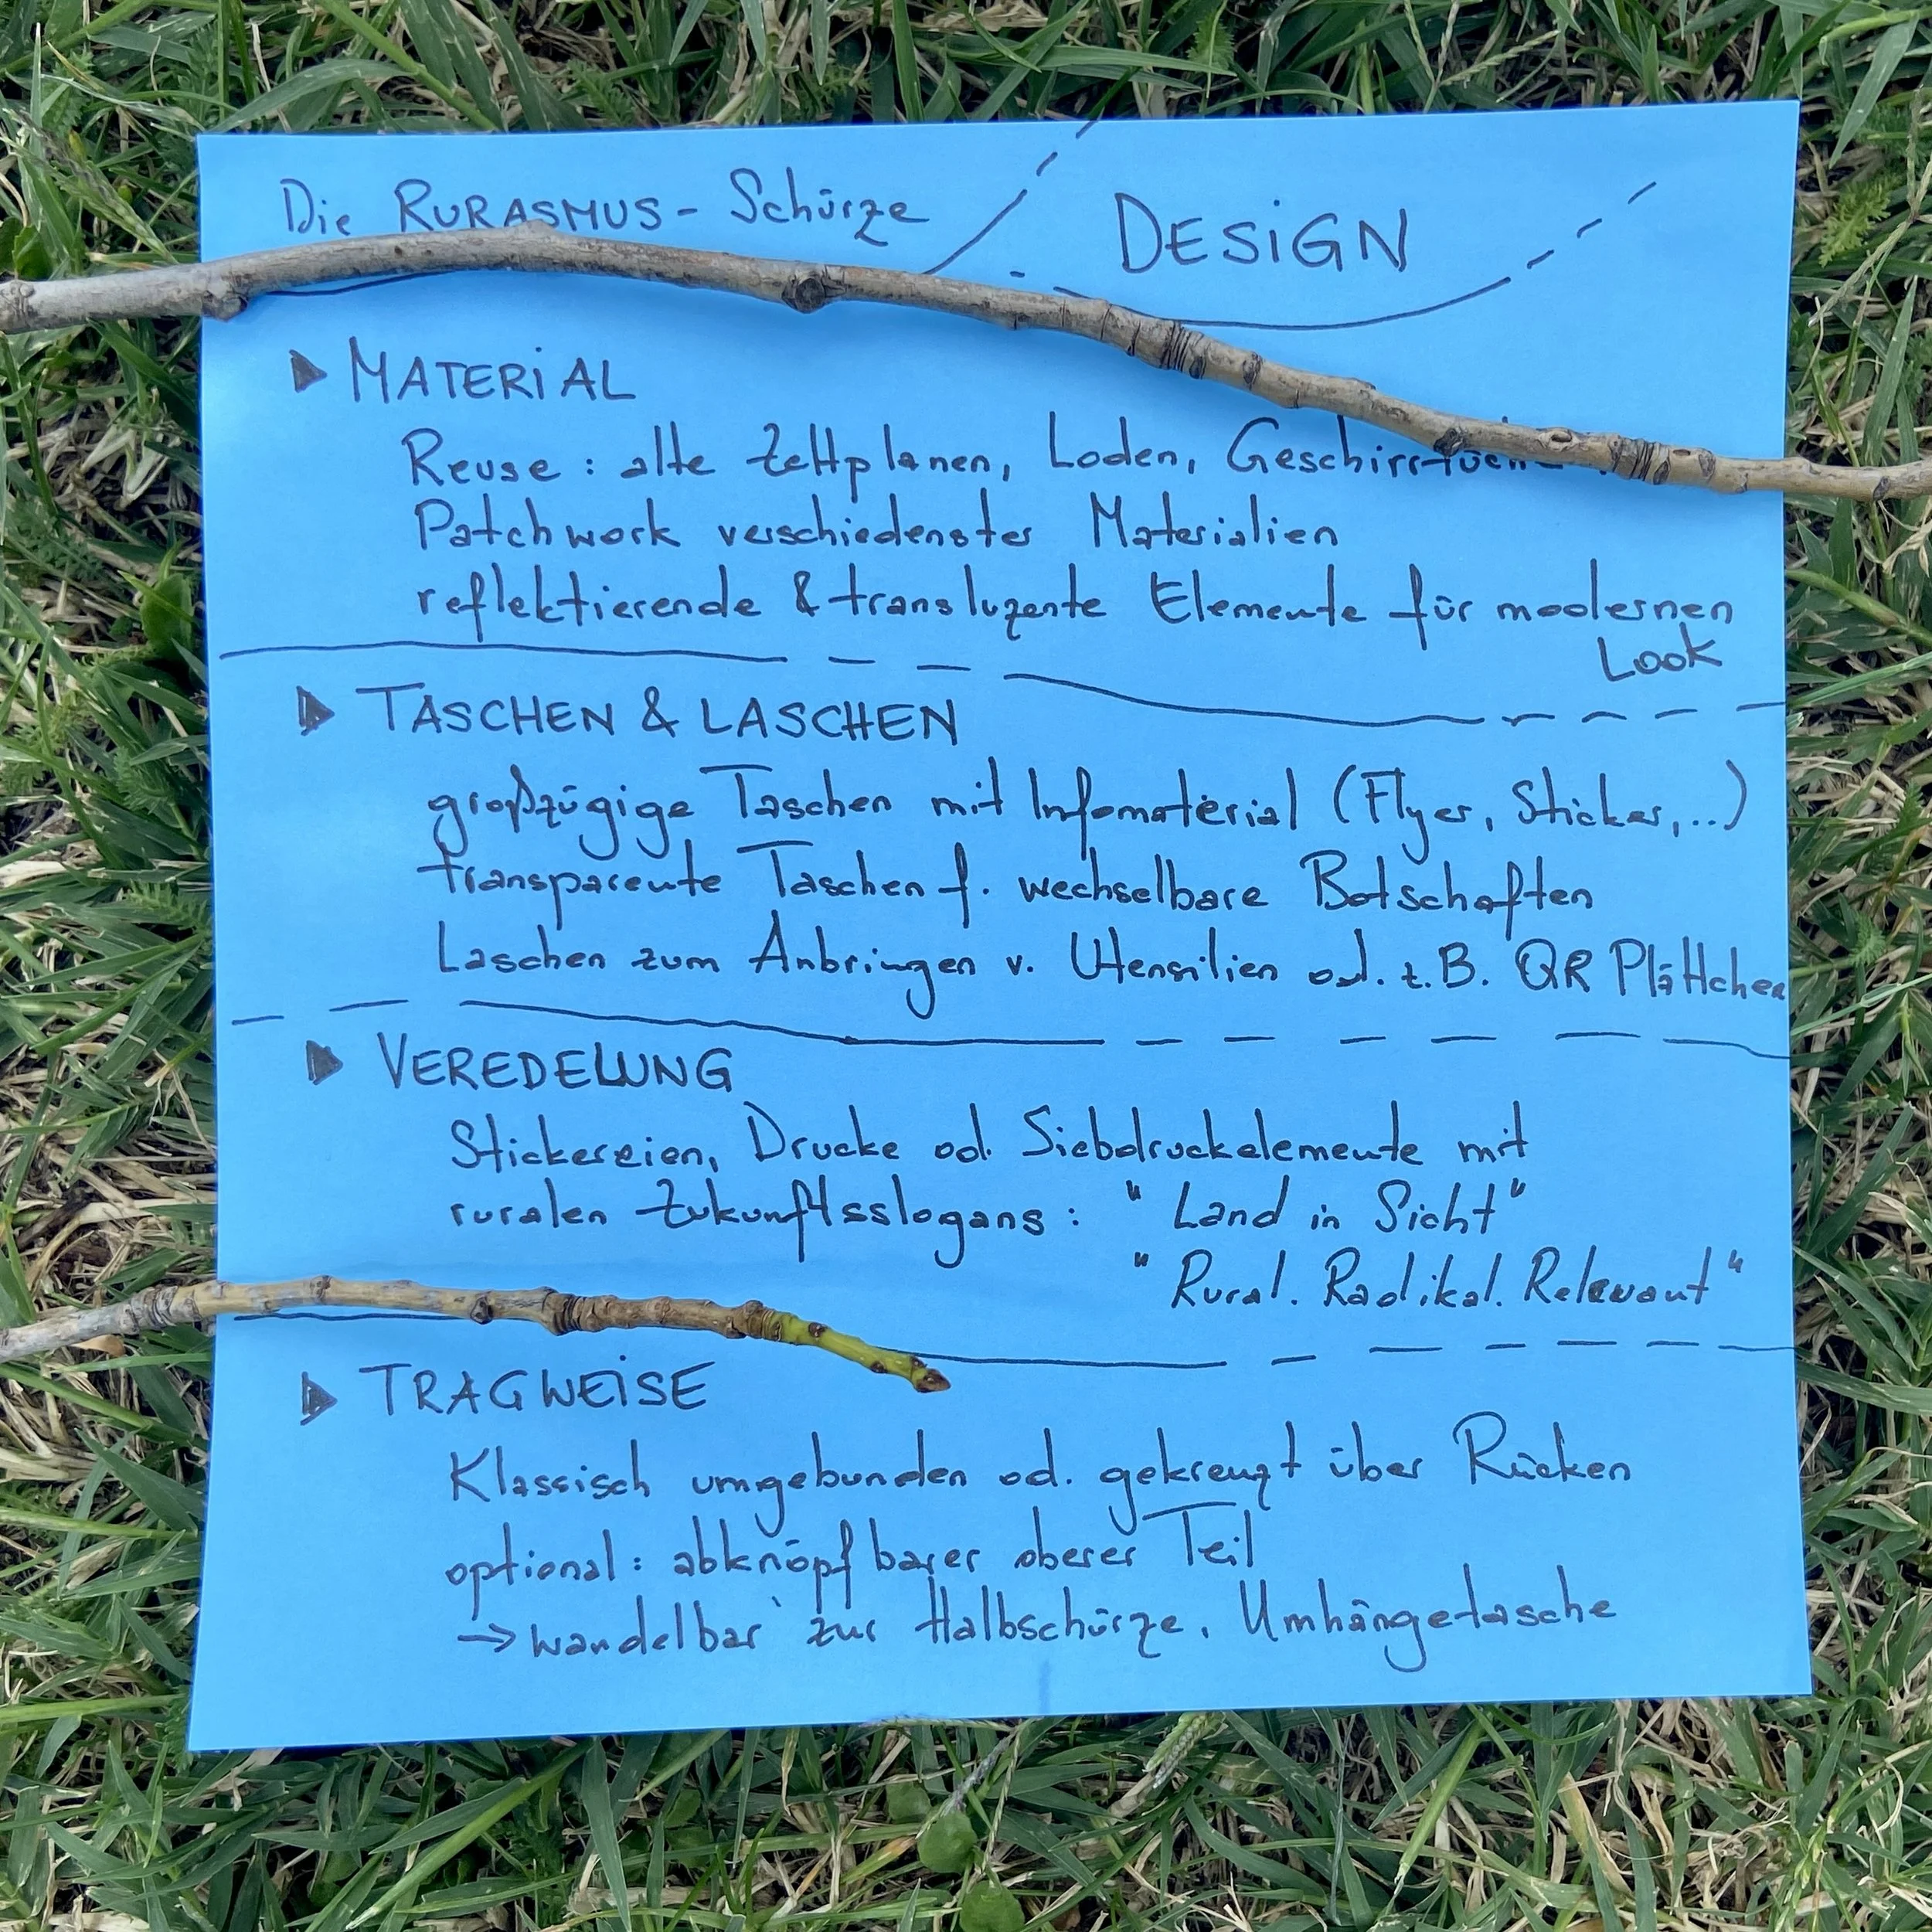 Die RURASMUS - Schürze
DESiGN
MATERiAL
Reuse : alte Zeltplanen, Loden,
Patchwork verschiedenster Materialien
reflektierende & transluzente Elemente für modernen
Look
TASCHEN & LASCHEN
großzügige Taschen mit Infomaterial (Flyer, Sticker,...)
transparente Taschen f. wechselbare Botschaften
Laschen zum Anbringen v. Utensilien od. z.B. QR Plättchen
VEREDELUNG
Stickereien, Drucke od. Siebdruckelemente mit
ruralen Zukunftsslogans : "Land in Sicht"
"Rural. Radikal. Relevant"
TRAGWEiSE
Klassisch umgebunden od. gekreuzt über Rücken
optional : abknöpfbarer oberer Teil
→ wandelbar zur Halbschürze, Umhängetasche